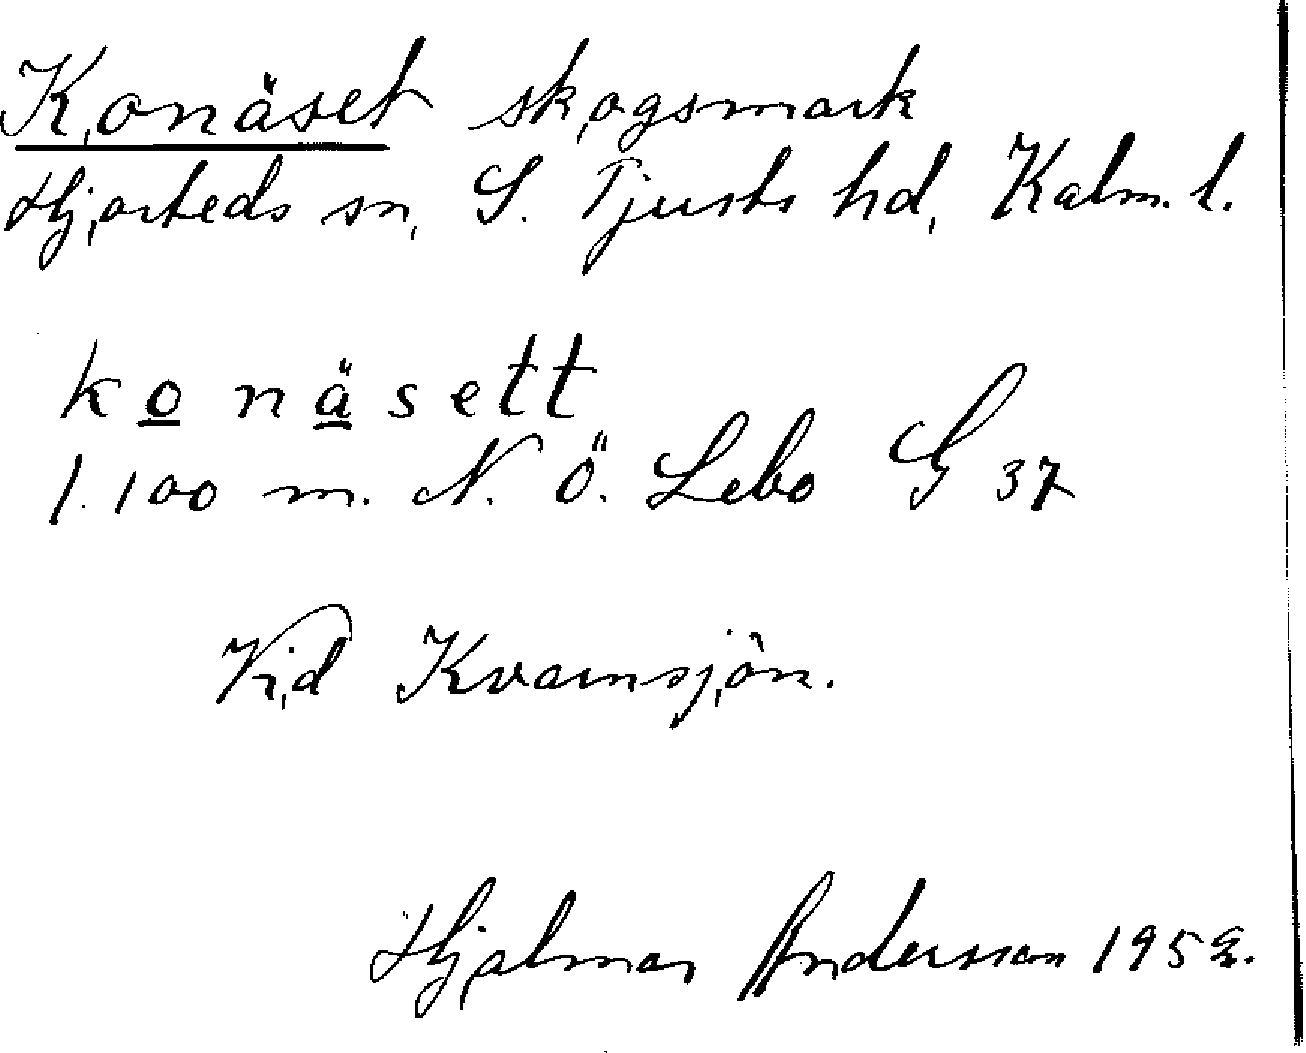 Konäset skogsmark
Hjorteds sn, S. Tjusts hd, Kalm. l.
konäsett
1.100 m. N. Ö. Lebo G 37
Vid Kvarnsjön.
Hjalmar Andersson